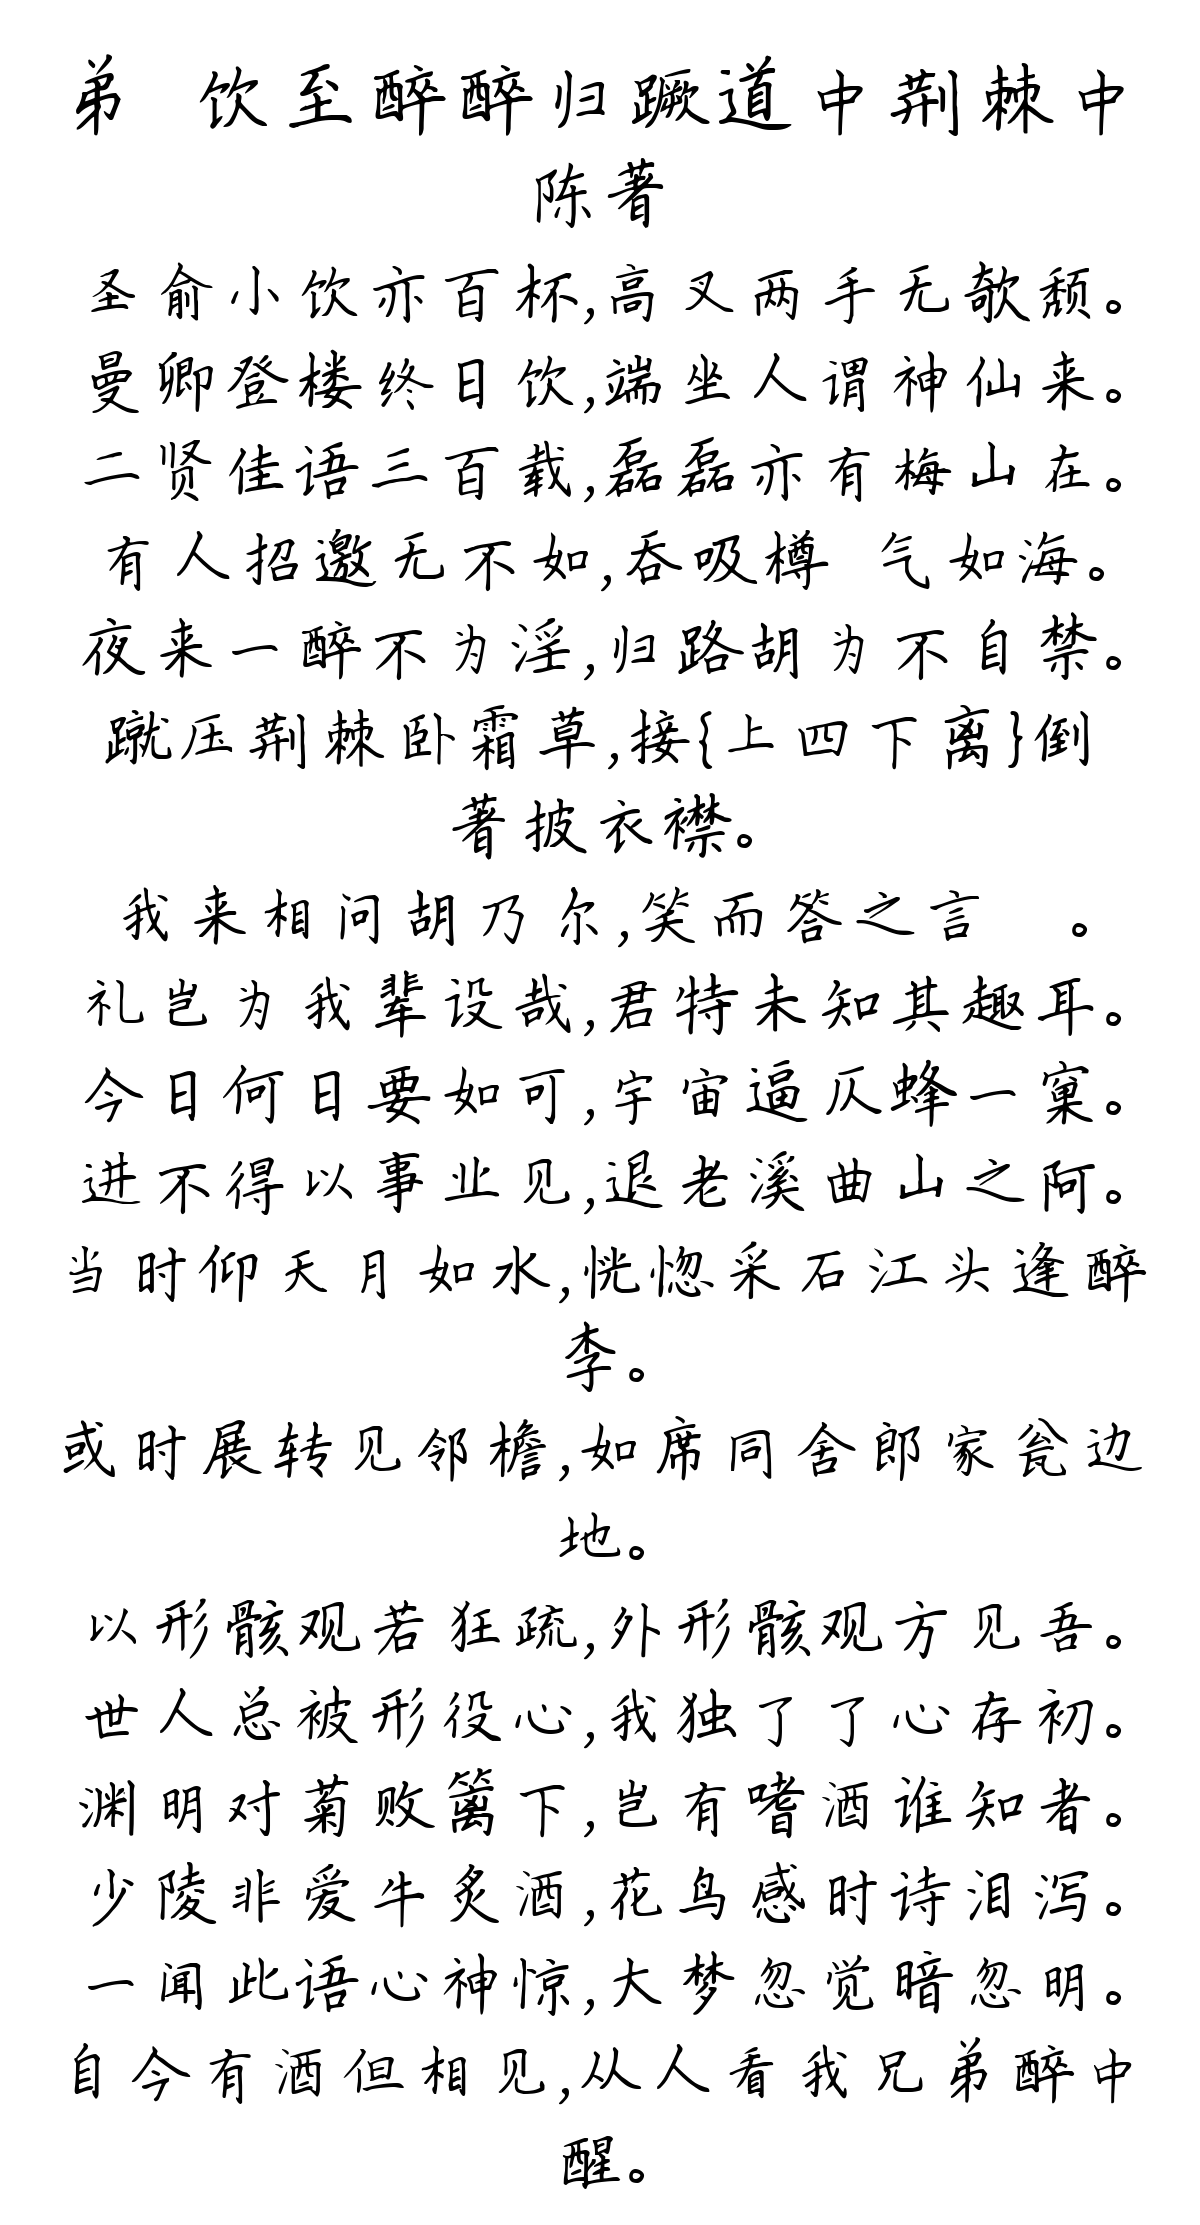 弟 饮至醉醉归蹶道中荆棘中
陈著
圣俞小饮亦百杯,高叉两手无欹颓。
曼卿登楼终日饮,端坐人谓神仙来。
二贤佳语三百载,磊磊亦有梅山在。
有人招邀无不如,吞吸樽 气如海。
夜来一醉不为淫,归路胡为不自禁。
蹴压荆棘卧霜草,接{上四下离}倒
著披衣襟。
我来相问胡乃尔,笑而答之言 。
礼岂为我辈设哉,君特未知其趣耳。
今日何日要如可,宇宙逼仄蜂一窠。
进不得以事业见,退老溪曲山之阿。
当时仰天月如水,恍惚采石江头逢醉
李。
或时展转见邻檐,如席同舍郎家瓮边
地。
以形骸观若狂疏,外形骸观方见吾。
世人总被形役心,我独了了心存初。
渊明对菊败篱下,岂有嗜酒谁知者。
少陵非爱牛炙酒,花鸟感时诗泪泻。
一闻此语心神惊,大梦忽觉暗忽明。
自今有酒但相见,从人看我兄弟醉中
醒。